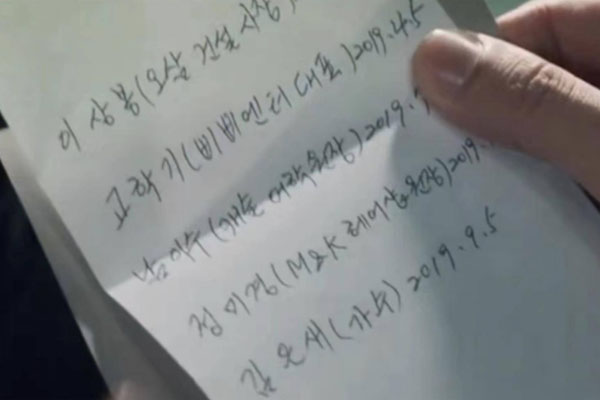 이 상 봉 ( 건설 사장
(비비엔터 대표)2019.4.5
남 이수 ( 어학원장)2019.
정 미경(M&K 헤어샵 원장)2019.
김 (가수) 2019.9.5